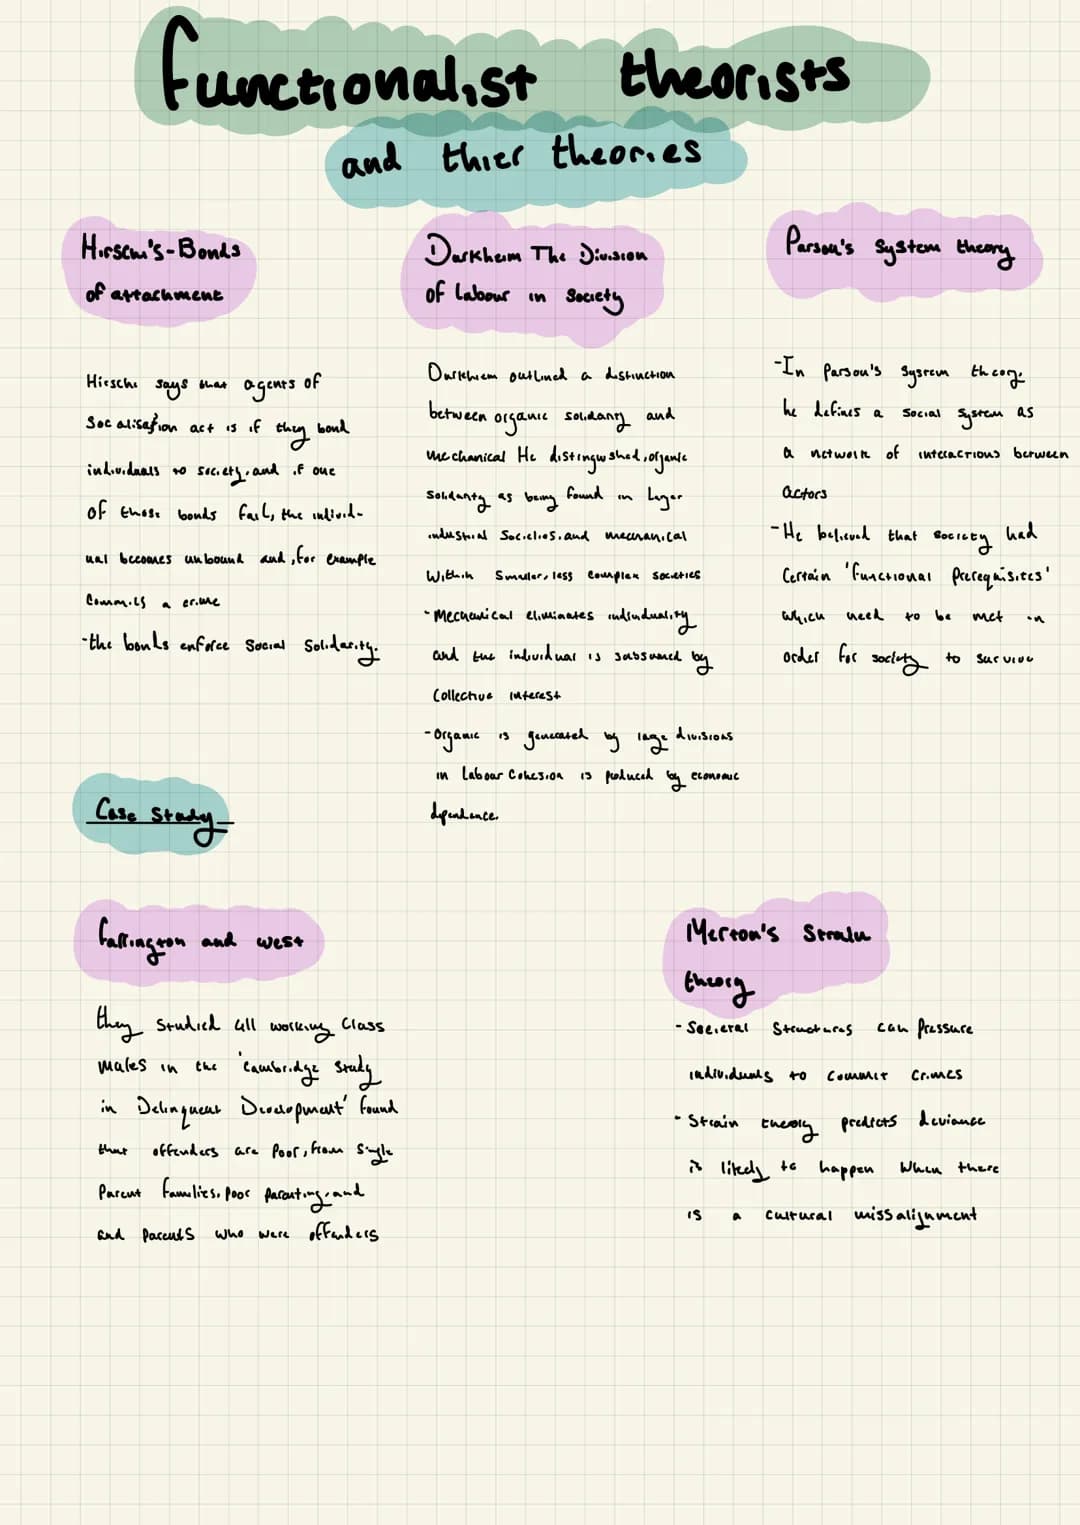 functionalist theorists
and thier theories
Hirschi's-Bonds
of attachment
Hirschi says that agents of
Socalisation act is if they bond
individuals to society, and if one
of those bonds fail, the individ-
ual becomes unbound and, for example
Commits a crime
-the bonds enforce Social Solidarity.
Durkheim The Division
of Labour in Society
Durkhiem outlined a distinction
between organic solidarity and
mechanical He distingushed, organic
Solidarity as being found in Larger
industrial Societies, and mechanical
Within Smaller, less complex societies
-Mechanical eliminates individuality
and the individual is subsumed by
Collective interest
-Organic is generated by large divisions
in Labour Cohesion is produced by economic
dependence.
Parson's System theory
-In Parson's system theory,
he defines a social system as
a network of interactions between
actors
-He believed that society had
Certain 'functional Prerequisites'
which need to be met in
order for society to survive
Case Study
farrington and west
they studied 411 working Class
males in the 'Cambridge Study
in Delinquent Development' found
that offenders are Poor, from Single
Parent families, poor parenting, and
and parents who were offenders
Merton's Strain
theory
-Societal Structures can Pressure
individuals to commit crimes
-Strain theory predicts deviance
is likely to happen when there
is a cultural missalignment